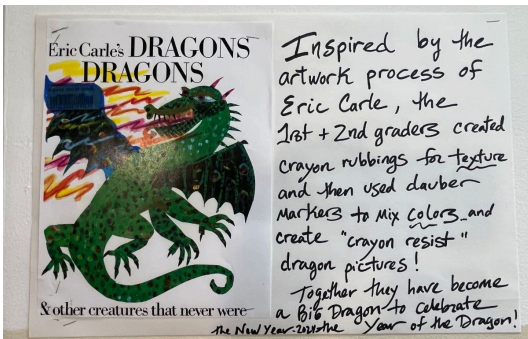 Eric Carle's DRAGONS
DRAGONS
& other creatures that never were
Inspired by the
artwork process of
Eric Carle, the
1rst + 2nd graders created
crayon rubbings for texture
and then used dauber
markers to mix colors and
create "crayon resist"
dragon pictures!
Together they have become
a Big Dragon to celebrate
the New Year-2024-the Year of the Dragon!